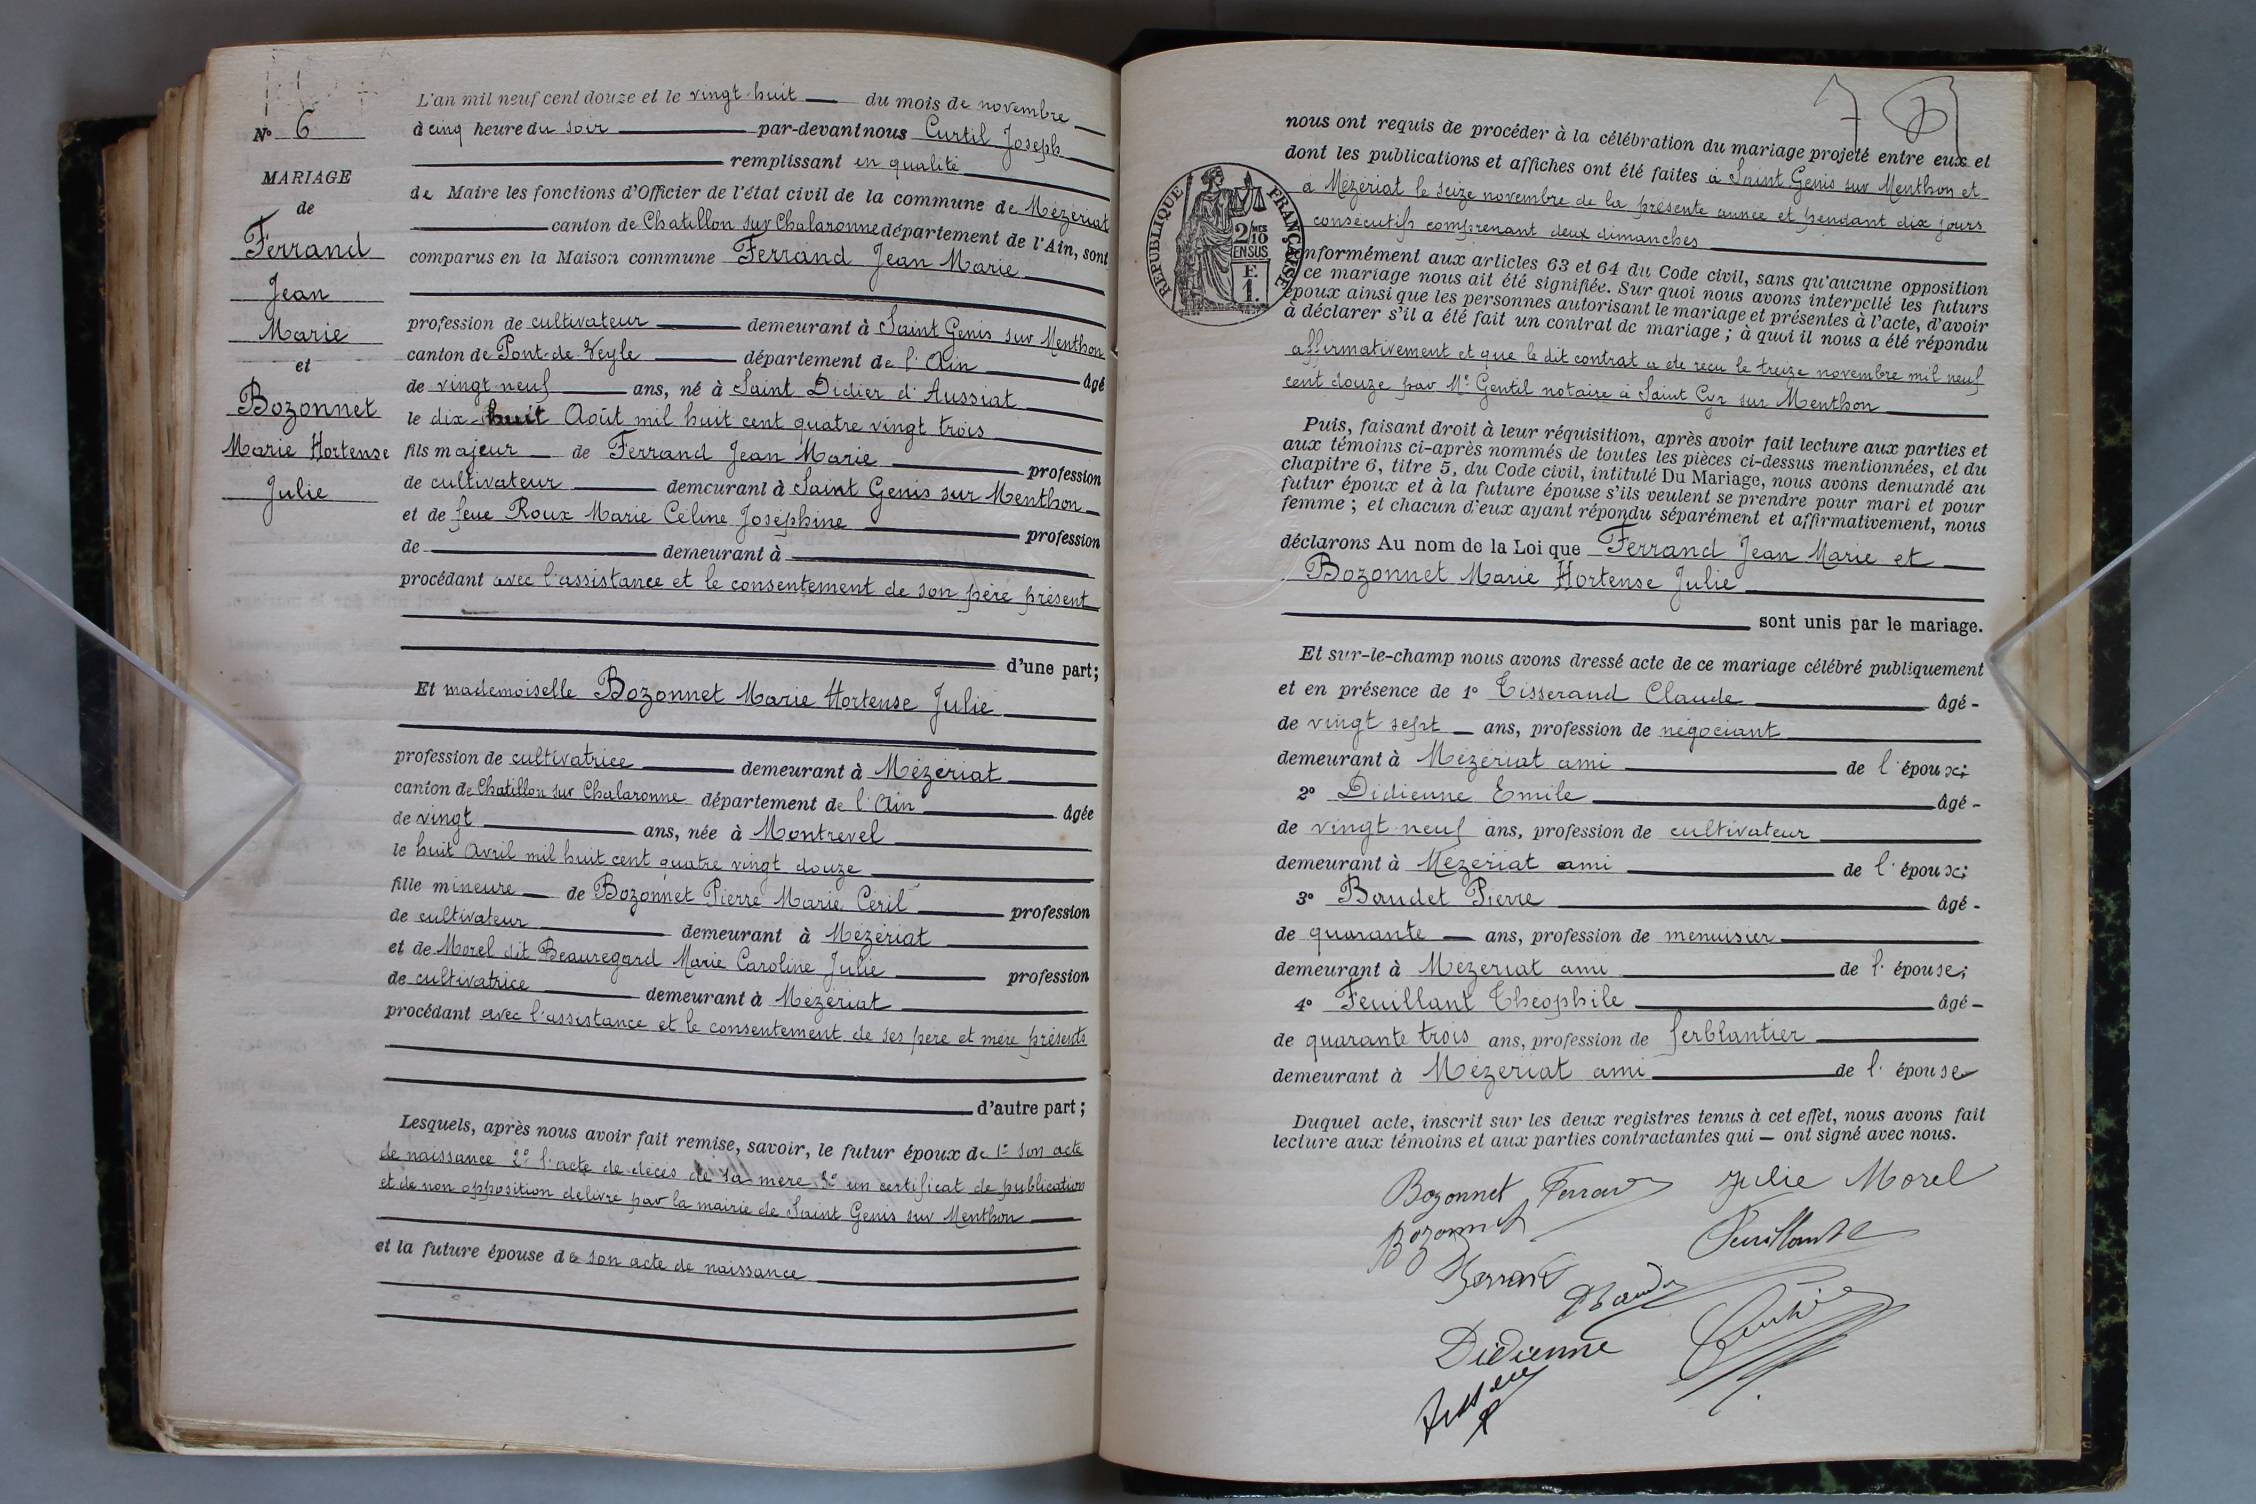 N° 6
MARIAGE
de
Ferrand
Jean
Marie
et
Bozonnet
Marie Hortense
Julie
L'an mil neuf cent douze et le vingt-huit du mois de novembre
à cinq heure du soir par-devant nous Curtil Joseph
remplissant en qualité
de Maire les fonctions d'Officier de l'état civil de la commune de Mézériat
canton de Chatillon sur Chalaronne département de l'Ain, sont
comparus en la Maison commune Ferrand Jean Marie
profession de cultivateur demeurant à Saint Genis sur Menthon
canton de Pont-de-Veyle département de l'Ain âgé
de vingt-neuf ans, né à Saint Didier d'Aussiat
le dix-huit Août mil huit cent quatre vingt trois
fils majeur de Ferrand Jean Marie profession
de cultivateur demeurant à Saint Genis sur Menthon
et de feue Roux Marie Céline Joséphine profession
de demeurant à
procédant avec l'assistance et le consentement de son père présent
d'une part;
Et mademoiselle Bozonnet Marie Hortense Julie
profession de cultivatrice demeurant à Mézériat
canton de Chatillon sur Chalaronne département de l'Ain âgée
de vingt ans, née à Montrevel
le huit Avril mil huit cent quatre vingt douze
fille mineure de Bozonnet Pierre Marie Céril profession
de cultivateur demeurant à Mézériat
et de Morel dit Beauregard Marie Caroline Julie profession
de cultivatrice demeurant à Mézériat
procédant avec l'assistance et le consentement de ses père et mère présents
d'autre part;
Lesquels, après nous avoir fait remise, savoir, le futur époux de 1° son acte
de naissance 2° l'acte de décès de sa mère 3° un certificat de publication
et de non opposition délivré par la mairie de Saint Genis sur Menthon
et la future épouse de son acte de naissance
7
RÉPUBLIQUE FRANÇAISE
2/10 MES
EN SUS
E
1.
nous ont requis de procéder à la célébration du mariage projeté entre eux et
dont les publications et affiches ont été faites à Saint Genis sur Menthon et
à Mézériat le seize novembre de la présente année et pendant dix jours
consécutifs comprenant deux dimanches
conformément aux articles 63 et 64 du Code civil, sans qu'aucune opposition
à ce mariage nous ait été signifiée. Sur quoi nous avons interpellé les futurs
époux ainsi que les personnes autorisant le mariage et présentes à l'acte, d'avoir
à déclarer s'il a été fait un contrat de mariage; à quoi il nous a été répondu
affirmativement et que le dit contrat a été reçu le treize novembre mil neuf
cent douze par Me Gentil notaire à Saint Cyr sur Menthon
Puis, faisant droit à leur réquisition, après avoir fait lecture aux parties et
aux témoins ci-après nommés de toutes les pièces ci-dessus mentionnées, et du
chapitre 6, titre 5, du Code civil, intitulé Du Mariage, nous avons demandé au
futur époux et à la future épouse s'ils veulent se prendre pour mari et pour
femme; et chacun d'eux ayant répondu séparément et affirmativement, nous
déclarons Au nom de la Loi que Ferrand Jean Marie et
Bozonnet Marie Hortense Julie
sont unis par le mariage.
Et sur-le-champ nous avons dressé acte de ce mariage célébré publiquement
et en présence de 1° Tisserand Claude âgé
de vingt sept ans, profession de négociant
demeurant à Mézériat ami de l'époux;
2° Didienne Emile âgé
de vingt-neuf ans, profession de cultivateur
demeurant à Mézériat ami de l'époux;
3° Baudet Pierre âgé
de quarante ans, profession de menuisier
demeurant à Mézériat ami de l'épouse;
4° Feuillant Théophile âgé
de quarante trois ans, profession de ferblantier
demeurant à Mézériat ami de l'épouse
Duquel acte, inscrit sur les deux registres tenus à cet effet, nous avons fait
lecture aux témoins et aux parties contractantes qui ont signé avec nous.
Bozonnet Ferrand Julie Morel
Bozonnet Feuillant
Ferrand Baudet
Didienne Curtil